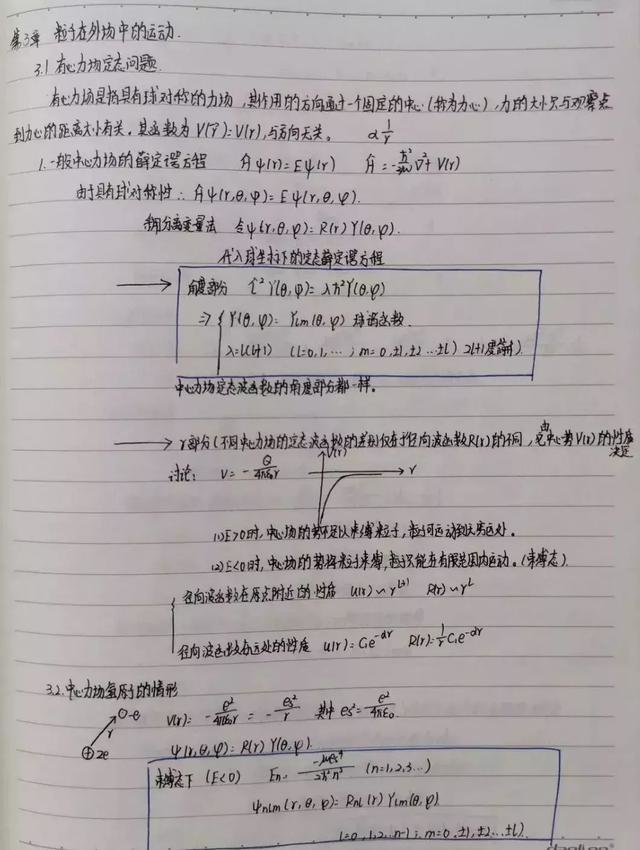 第3章 粒子在外场中的运动.
3.1 有心力场定态问题.
有心力场是指具有球对称的力场,其作用的方向通过一个固定的中心(称为力心),力的大小只与观察点
到力心的距离大小有关。其函数为 V(r⃗)=V(r),与方向无关。 α 1/r
1.一般中心力场的薛定谔方程 Ĥψ(r)=Eψ(r) Ĥ=-ħ²/2μ ∇²+V(r)
由于具有球对称性: Ĥψ(r,θ,φ)=Eψ(r,θ,φ).
利用分离变量法 令ψ(r,θ,φ)=R(r)Y(θ,φ).
代入球坐标下的定态薛定谔方程
→ 角度部分 L̂²Y(θ,φ)=λħ²Y(θ,φ)
⇒ { Y(θ,φ)=Ylm(θ,φ) 球谐函数.
λ=l(l+1) (l=0,1,…; m=0,±1,±2…±l) 2l+1度简并)
中心力场定态波函数的角度部分都一样。
→ r部分(不同中心力场的定态波函数的差别仅在于径向波函数R(r)的不同, 由中心势V(r)的性质
决定
讨论: V=-Q/4πε₀r V(r) r
(1)E>0时,中心场的势不足以束缚粒子,粒子可运动到无穷远处.
(2)E<0时,中心场的势将粒子束缚,粒子只能在有限范围内运动。(束缚态)
{ 径向波函数在原点附近的性质 u(r)∽r^(l+1) R(r)∽r^l
径向波函数在远处的性质 u(r)=C₁e^(-αr) R(r)=1/r C₁e^(-αr)
3.2.中心力场氢原子的情形
⊖-e
r
⊕ze
V(r)=-e²/4πε₀r=-es²/r 其中 es²=e²/4πε₀
ψ(r,θ,φ)=R(r)Y(θ,φ).
束缚态下 (E<0) En=-μes⁴/2ħ²n² (n=1,2,3…)
ψnlm(r,θ,φ)=Rnl(r)Ylm(θ,φ)
l=0,1,2…n-1; m=0,±1,±2…±l)